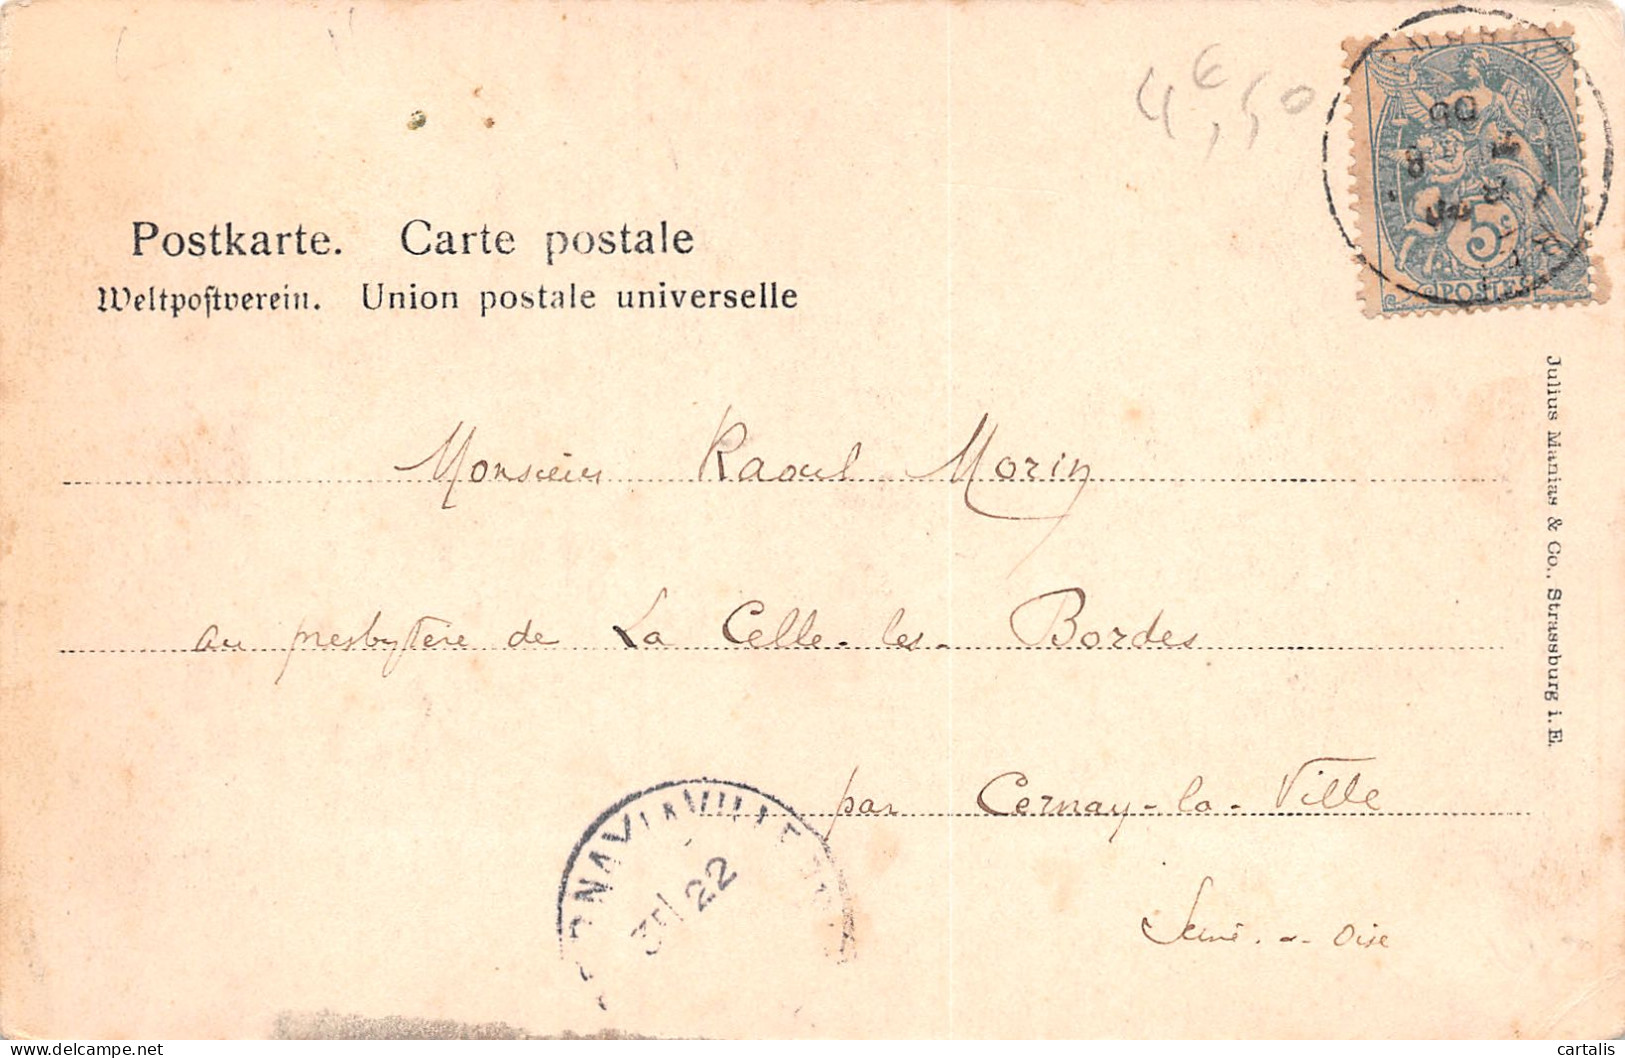 4€,50
05
5
POSTES
Postkarte. Carte postale
Weltpostverein. Union postale universelle
Julius Manias & Co., Strassburg i. E.
Monsieur Raoul Morin
au presbytère de La Celle-les-Bordes
par Cernay-la-Ville
Seine-&-Oise
22
cartalis